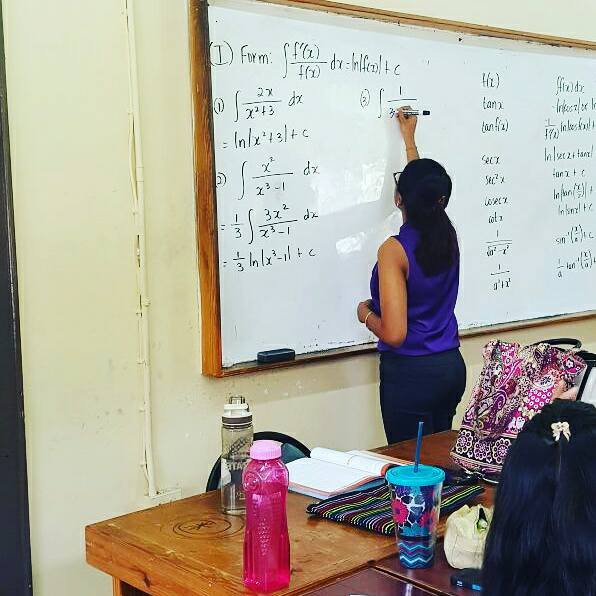 (I) Form: ∫ f'(x)/f(x) dx = ln|f(x)| + c
(1) ∫ 2x/(x²+3) dx
= ln|x²+3| + c
2) ∫ x²/(x³-1) dx
= 1/3 ∫ 3x²/(x³-1) dx
= 1/3 ln|x³-1| + c
(3) ∫ 1/3
f(x) ∫f(x)dx
tanx -ln|cosx| or ln
tanf(x) 1/f'(x) ln|cosf(x)| +
secx ln|secx+tanx|
sec²x tanx + c
cosecx ln|tan(x/2)| +
cotx ln|sinx| + c
1/√(a²-x²) sin⁻¹(x/a) + c
1/(a²+x²) 1/a tan⁻¹(x/a) +